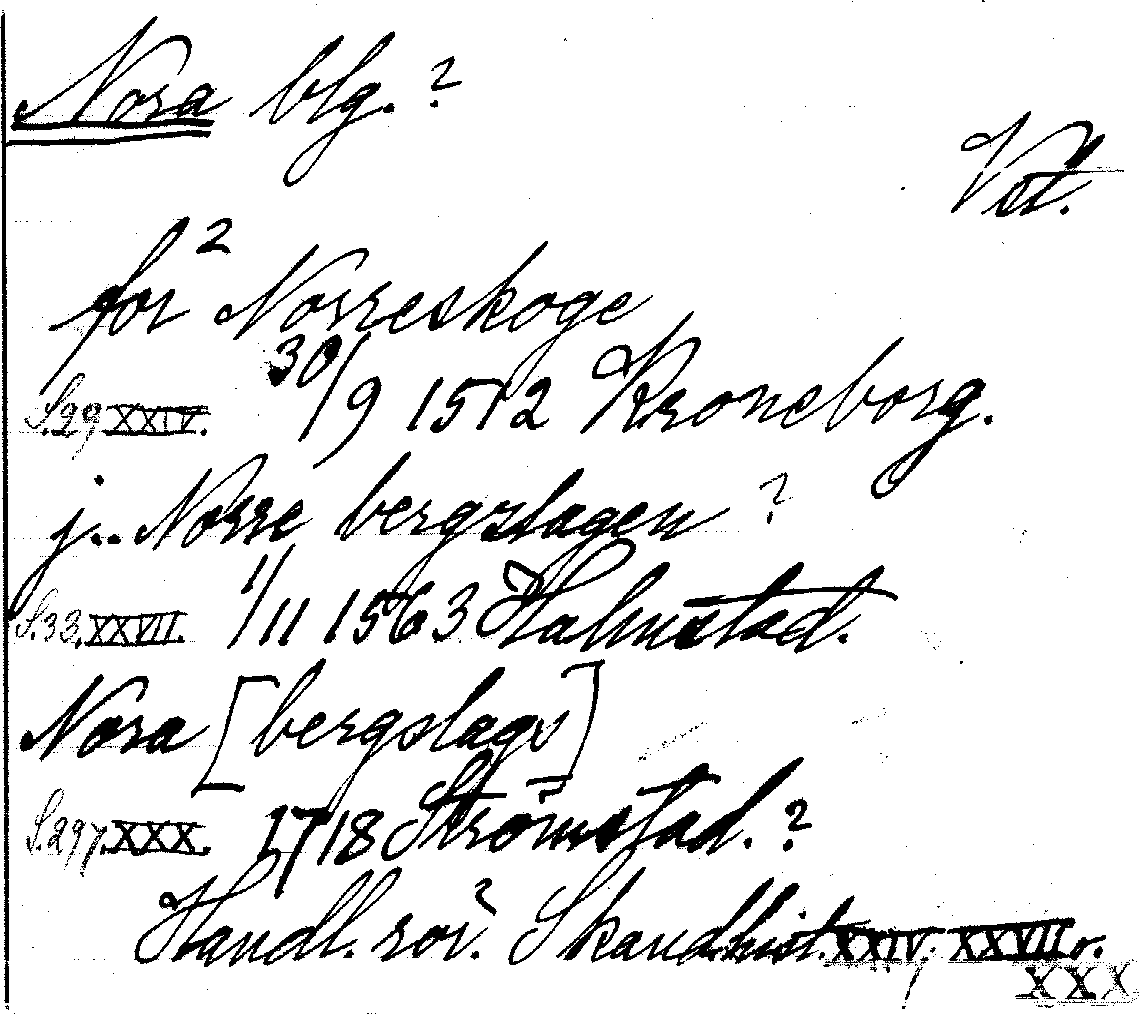 Nora blg. ?
Vst.
for 2 Norreskoge
S.29 XXIV. 30/9 1512 Kroneborg.
j.. Norre bergslagen ?
S.33. XXVII. 1/11 1563 Halmstad.
Nora [bergslags]
S.297. XXX. 1718 Strömstad. ?
Handl. rör. Skand. hist. XXIV, XXVII o.
XXX